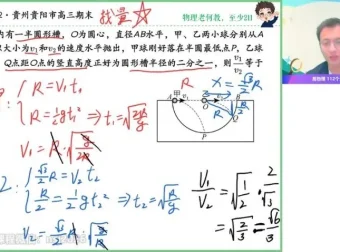 2·贵州贵阳市高三期末
战量☆
物理老何教, 至少211
内有一半圆形槽, O为圆心, 直径AB水平, 甲、乙两小球分别从A
以大小为v₁和v₂的速度水平抛出, 甲球刚好落在半圆最低点P, 乙球
Q点距O点的竖直高度正好为圆形槽半径的二分之一, 则 v₁/v₂ 等于
{ R = V₁ t₁
R = ½gt₁² ⇒ t₁ = √(2R/g)
V₁ = R / √(2R/g)
2:
{ √3/2 R = V₂ t₂
R/2 = ½gt₂² ⇒ t₂ = √(R/g)
V₂ = √3/2 R / √(R/g)
x = √3/2 R
A 甲 v₁ O v₂ B
R
P
V₁/V₂ = √(1/2) · 2/√3
= √(2/3) = √6/3